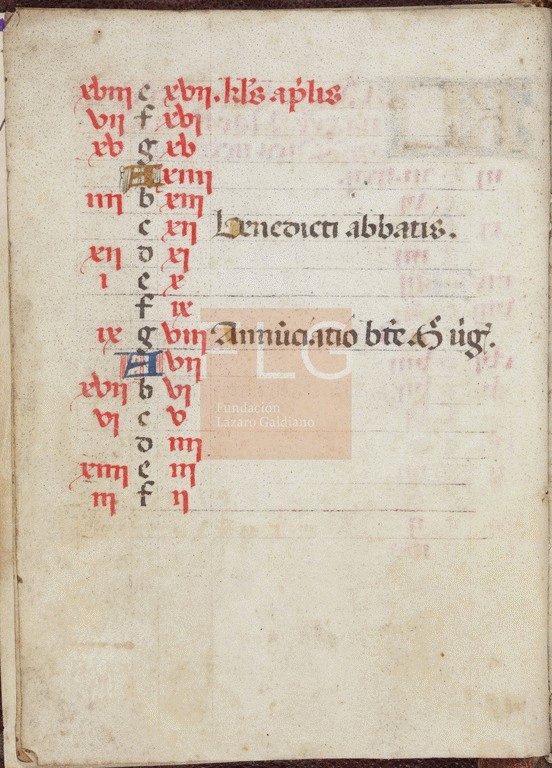 xviii c xvii. kl̄s ap̄lis
vii f xvi
xv g xv
A xiiii
iiii b xiii
c xii Benedicti abbatis.
xii d xi
i e x
f ix
ix g viii Annūciatio bt̄e M̄ ūḡ.
A vii
xvii b vi
vi c v
d iiii
xiiii e iii
iii f ii
FLG
Fundación
Lázaro Galdiano